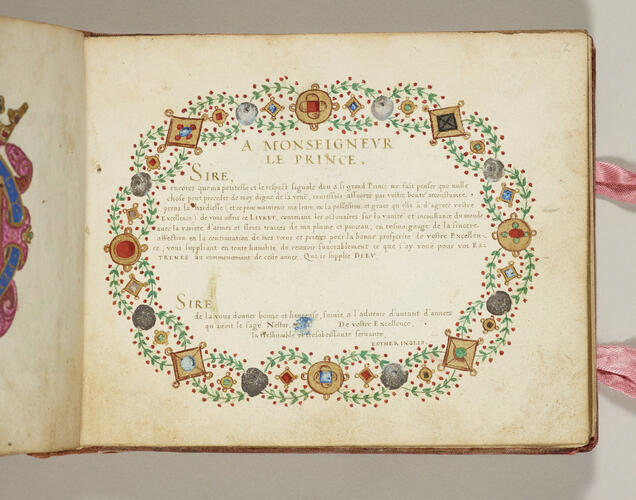 2
A MONSEIGNEVR
LE PRINCE.
SIRE,
encores que ma petitesse et le respect signalé deu a si grand Prince me fait penser que nulle
chose peut proceder de moy digne de la veuë, toutesfois asseurée par vostre bonté accoustumee,
prens la hardiesse (et ce pour maintenir ma leure en la possession et grace qu'ella a d'agreer vostre
Excellence) de vous offrir ce LIVRET, contenant les octonaires sur la vanité et inconstance du monde
avec la varieté d'armes et fleurs tracees de ma plume et pinceau, en tesmoignage de la sincere
affection en la continuation de mes vœux et prieres pour la bonne prosperité de vostre Excellen-
ce, vous suppliant en toute humilité de recevoir favorablement ce que i'ay voué pour voz Es-
TRENES au commencement de ceste année, Que ie supplie DIEV
SIRE,
de la vous donner bonne et heureuse, suivie a l'advenir d'autant d'années
qu'avoit le sage Nestor, De vostre Excellence,
la treshumble et tresobeissante servante,
ESTHER INGLIS.